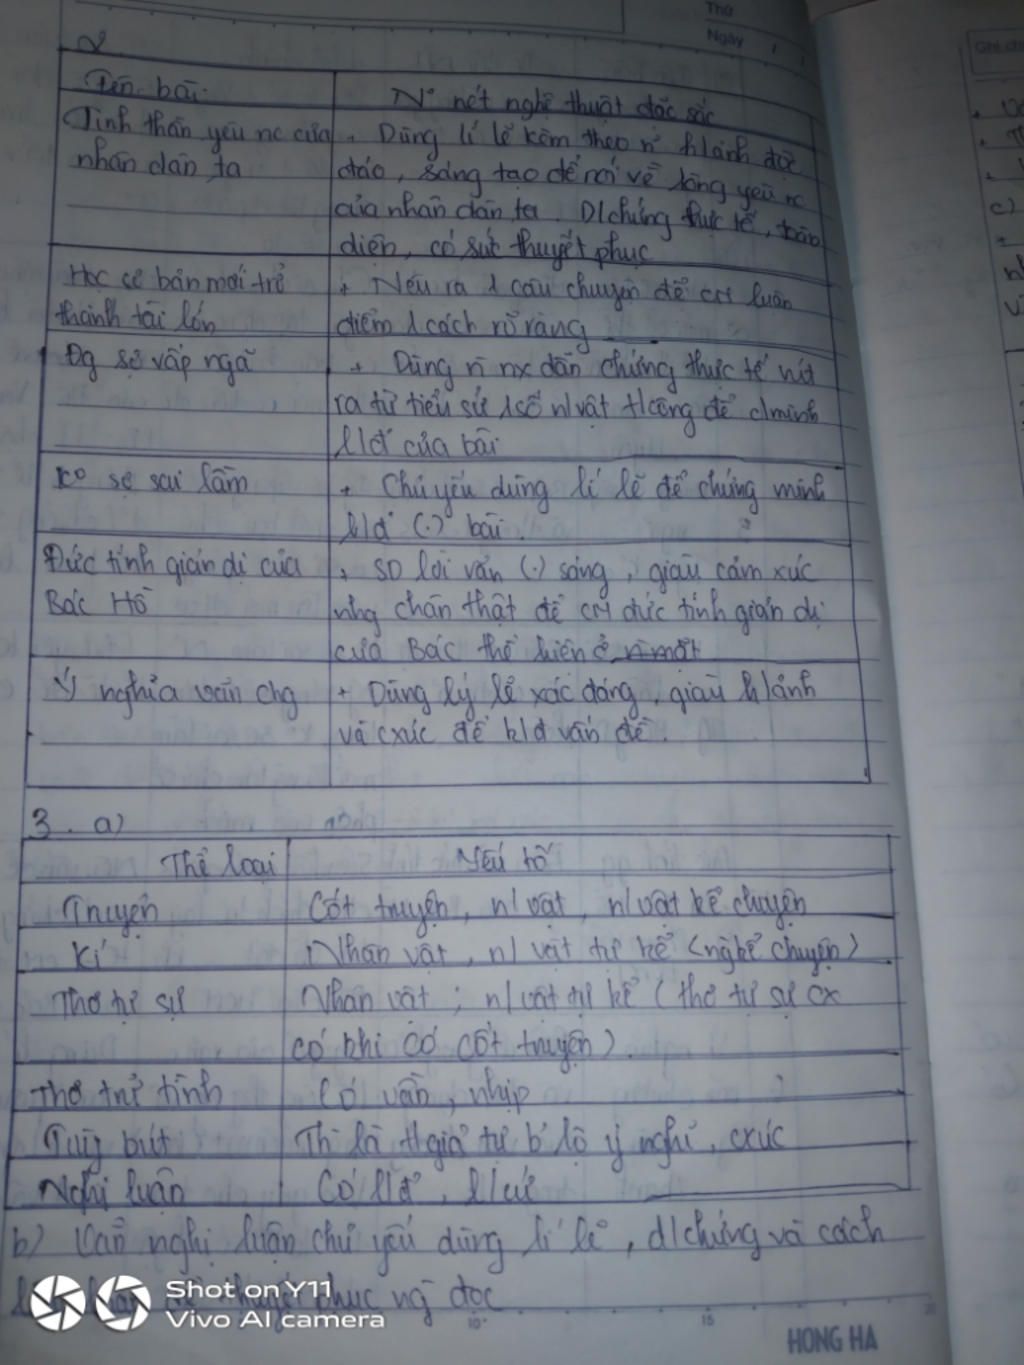 Thứ
Ngày
Ghi ch
2
Tên bài
N~ nét nghệ thuật đặc sắc
Tinh thần yêu nc của
nhân dân ta
+ Dùng lí lẽ kèm theo n~ h/ảnh độc
đáo, sáng tạo để nói về lòng yêu nc
của nhân dân ta. D/chứng thực tế, toàn
diện, có sức thuyết phục
Học cơ bản mới trở
thành tài lớn
+ Nêu ra 1 câu chuyện để CM luận
điểm 1 cách rõ ràng
Đg sợ vấp ngã
+ Dùng dẫn chứng thực tế rút
ra từ tiểu sử 1số n/vật t/công để c/minh
l/đ' của bài
Ko sợ sai lầm
+ Chủ yếu dùng lí lẽ để chứng minh
l/đ' (.) bài.
Đức tính giản dị của
Bác Hồ
+ SD lời văn (.) sáng, giàu cảm xúc
nhg chân thật để CM đức tính giản dị
của Bác thể hiện ở
Ý nghĩa văn chg
+ Dùng lý lẽ xác đáng, giàu h/ảnh
và cxúc để k/đ vấn đề.
3. a)
Thể loại
Yếu tố
Truyện
Cốt truyện, n/vật, n/vật kể chuyện
Kí
Nhân vật, n/vật tự kể (ng kể chuyện)
Thơ tự sự
Nhân vật; n/vật tự kể (thơ tự sự cx
có khi có cốt truyện).
Thơ trữ tình
Có vần, nhịp
Tuỳ bút
Th' là t/giả tự b' lộ ý nghĩ, cxúc
Nghị luận
Có l/đ', l/cứ
b) Văn nghị luận chủ yếu dùng lí lẽ, d/chứng và cách
thuyết phục ng đọc
Shot on Y11
Vivo AI camera
10
15
20
HONG HA